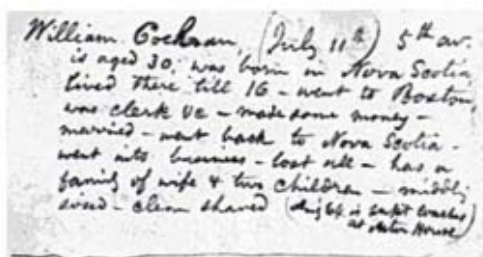 William Cochran, (July 11th) 5th av.
is aged 30, was born in Nova Scotia
lived there till 16 - went to Boston,
was clerk &c - made some money -
married - went back to Nova Scotia -
went into business - lost all - has a
family of wife & two children - middling
sized - clean shaved (
at Astor House)